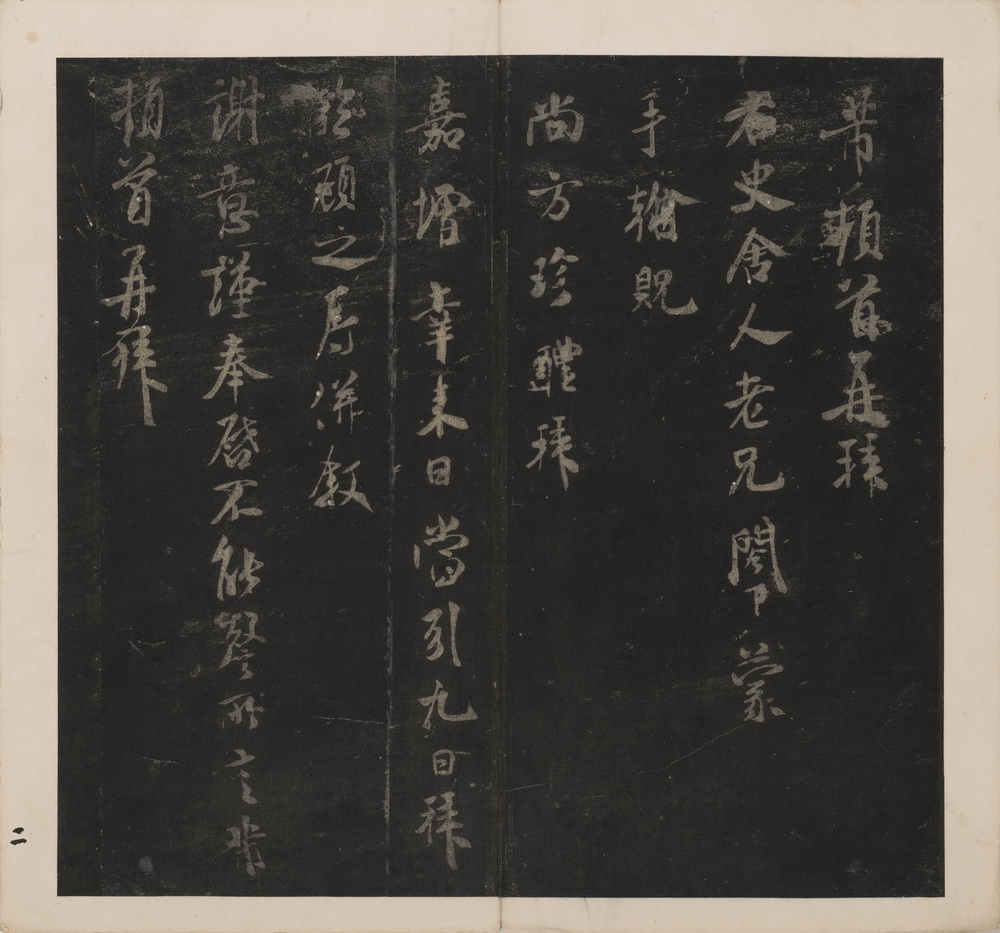 芾頓首再拜
右史舍人老兄閣下蒙
手翰貺
尚方珍醴拜
嘉增幸来日當引九日拜
顧之辱併敘
謝意謹奉啓不能罄所言芾
頓首再拜
二